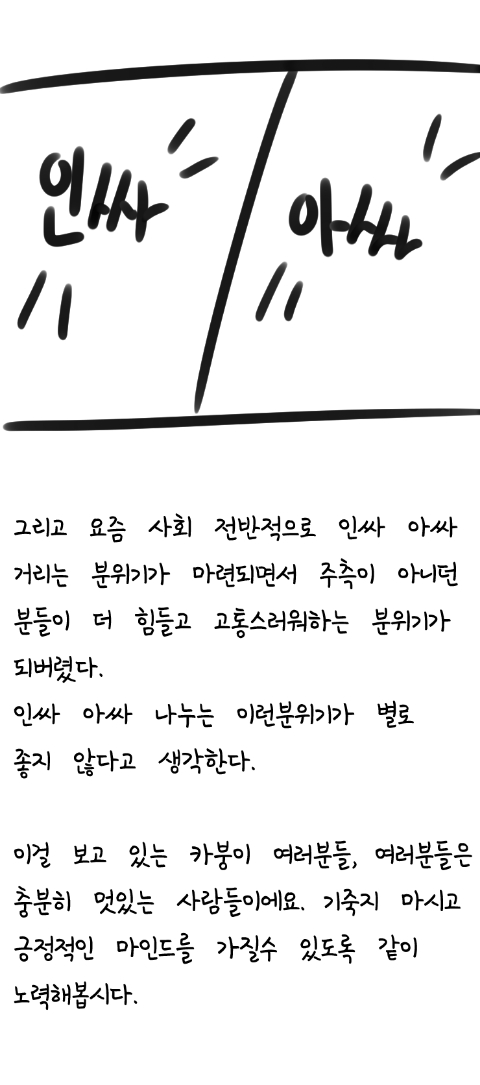 인싸 아싸
그리고 요즘 사회 전반적으로 인싸 아싸
거리는 분위기가 마련되면서 주축이 아니던
분들이 더 힘들고 고통스러워하는 분위기가
되버렸다.
인싸 아싸 나누는 이런분위기가 별로
좋지 않다고 생각한다.
이걸 보고 있는 카붕이 여러분들, 여러분들은
충분히 멋있는 사람들이에요. 기죽지 마시고
긍정적인 마인드를 가질수 있도록 같이
노력해봅시다.